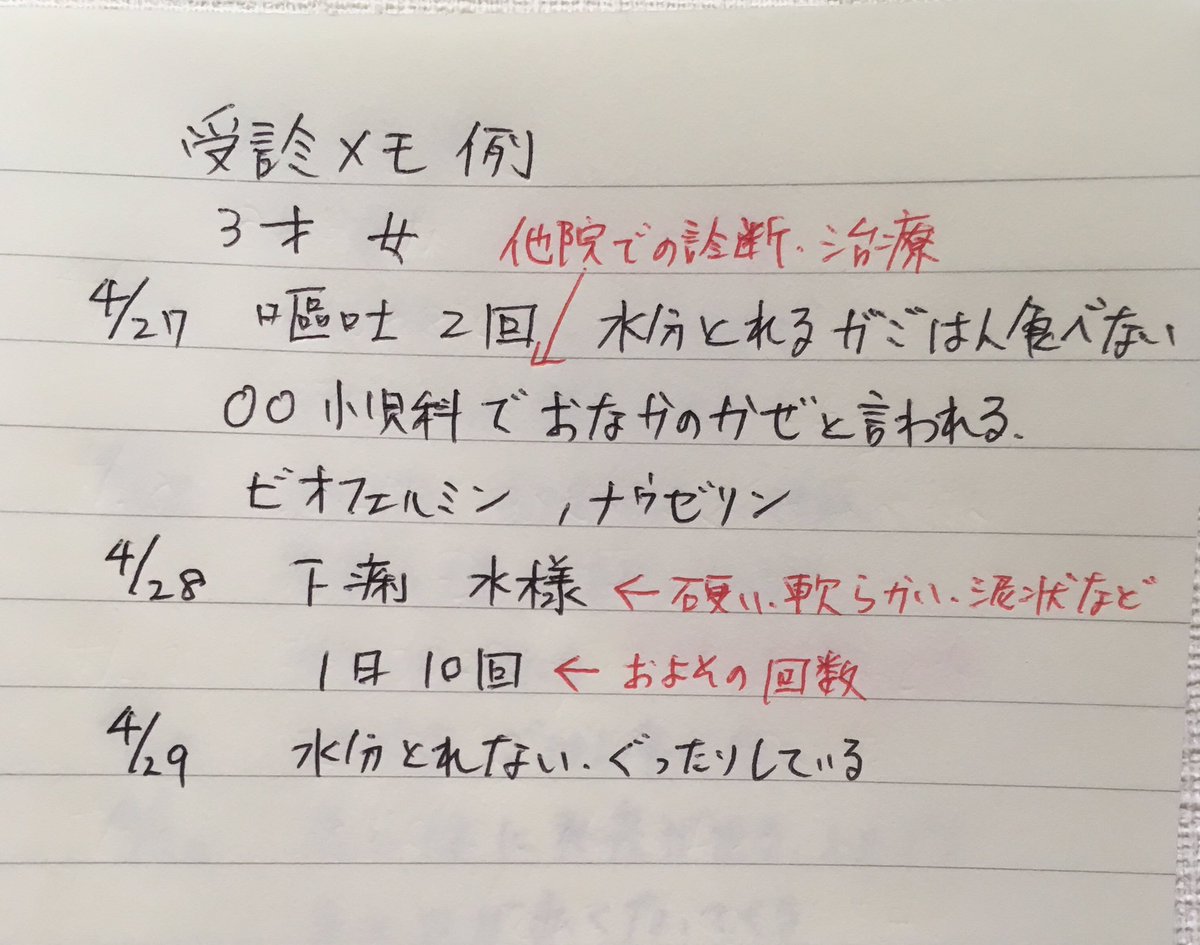 受診メモ 例
3才 女 他院での診断・治療
4/27 嘔吐 2回 水分とれるがごはん食べない
○○小児科でおなかのかぜと言われる.
ビオフェルミン , ナウゼリン
4/28 下痢 水様 ← 硬い、軟らかい、泥状など
1日 10回 ← およその回数
4/29 水分とれない、ぐったりしている